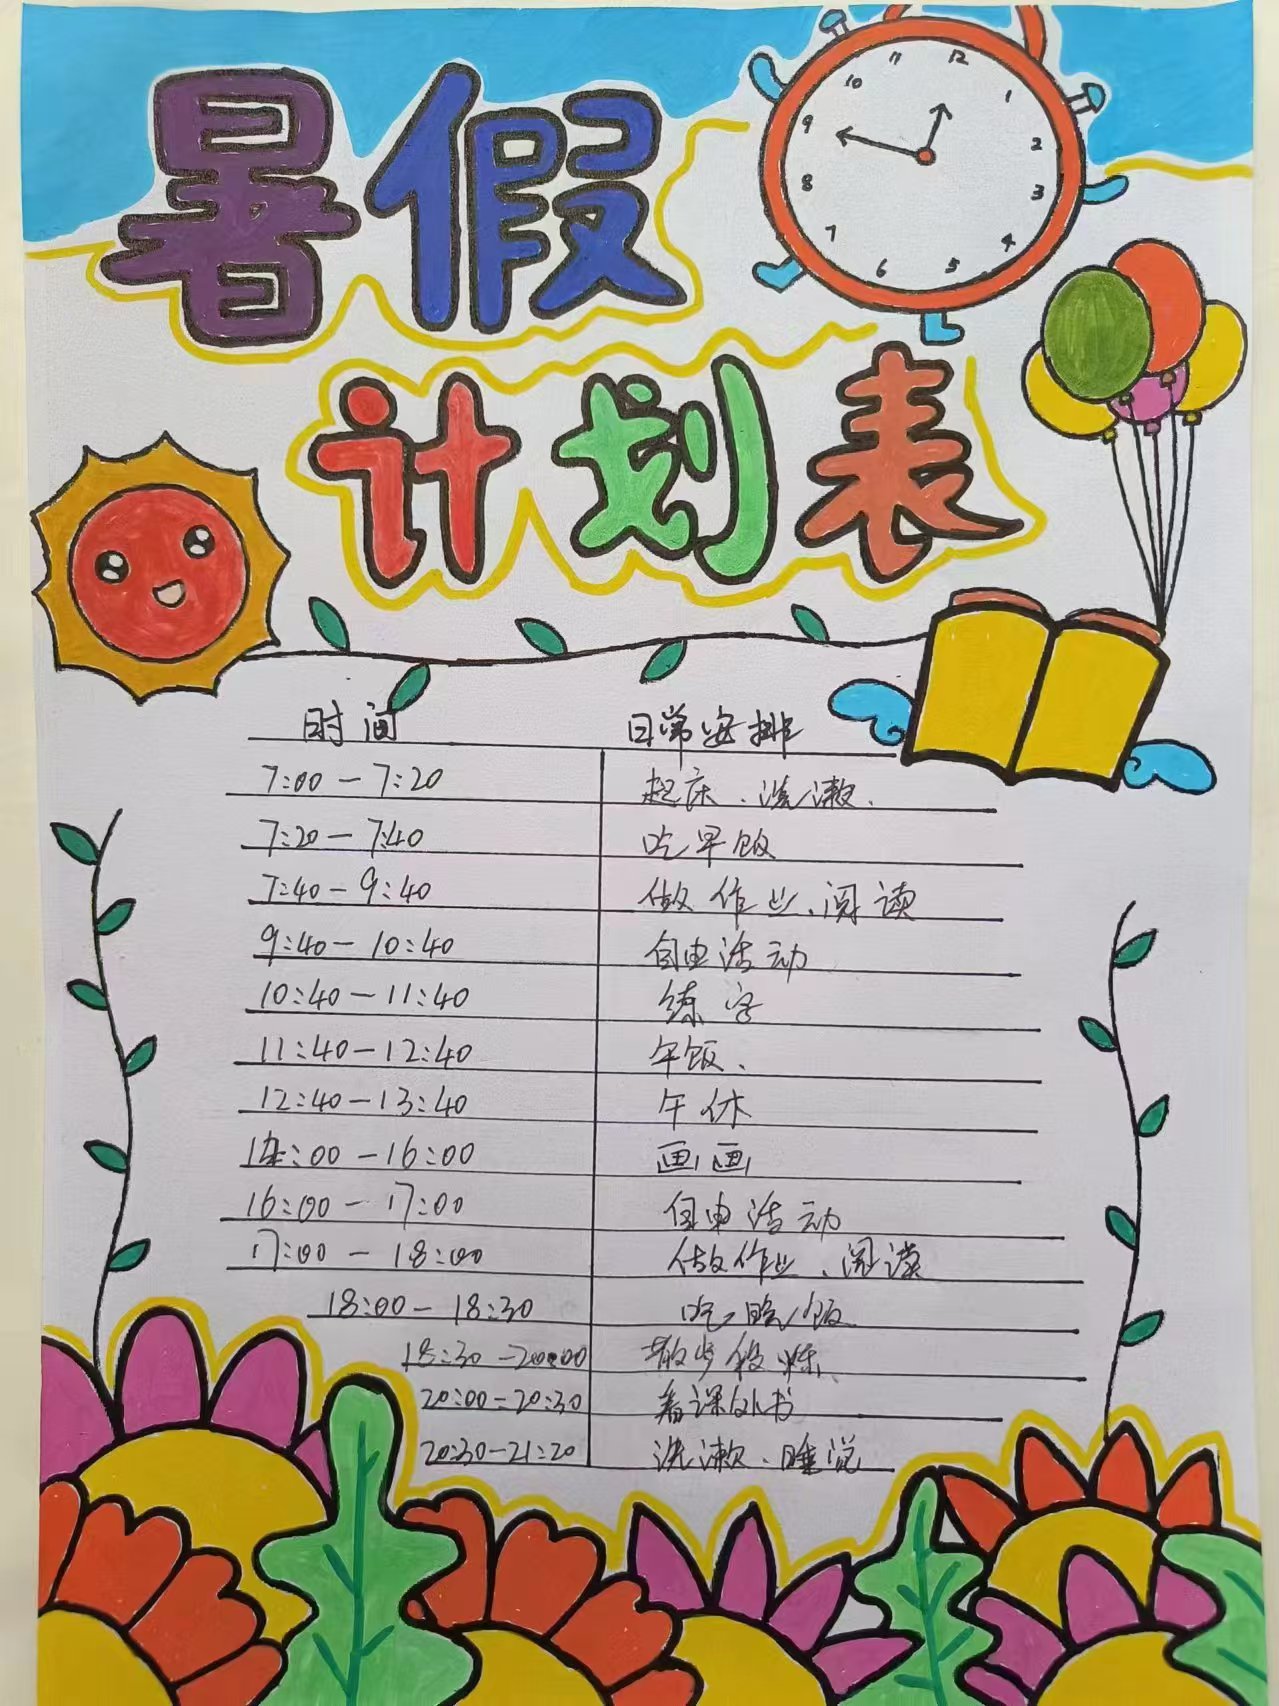 暑假
计划表
11 12 1 2 3 4 5 6 7 8 9 10
时间 日常安排
7:00-7:20 起床、洗漱、
7:20-7:40 吃早饭
7:40-9:40 做作业、阅读
9:40-10:40 自由活动
10:40-11:40 练字
11:40-12:40 午饭、
12:40-13:40 午休
14:00-16:00 画画
16:00-17:00 自由活动
17:00-18:00 做作业、阅读
18:00-18:30 吃晚饭
18:30-20:00 散步锻炼、
20:00-20:30 看课外书
20:30-21:20 洗漱、睡觉